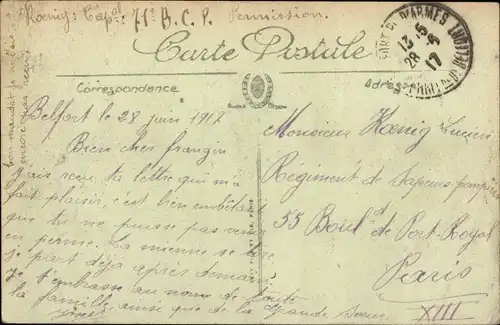 Kœnig Cap^al: 71e B.C.P. Permission.
Carte Postale
Correspondance
13-15
28-6
17
Belfort le 28 juin 1917
Bien cher frangin
J'ai reçu ta lettre qui m'a
fait plaisir, c'est bien embêtant
que tu ne puisse pas venir
en perme. La mienne se tire
je part déjà après demain.
Je t'embrasse au nom de toute
la famille ainsi que de la Grande Sœur.
Monsieur Kœnig Lucien
Régiment de Sapeurs-pompiers
55 Boul.d de Port-Royal
Paris
XIII